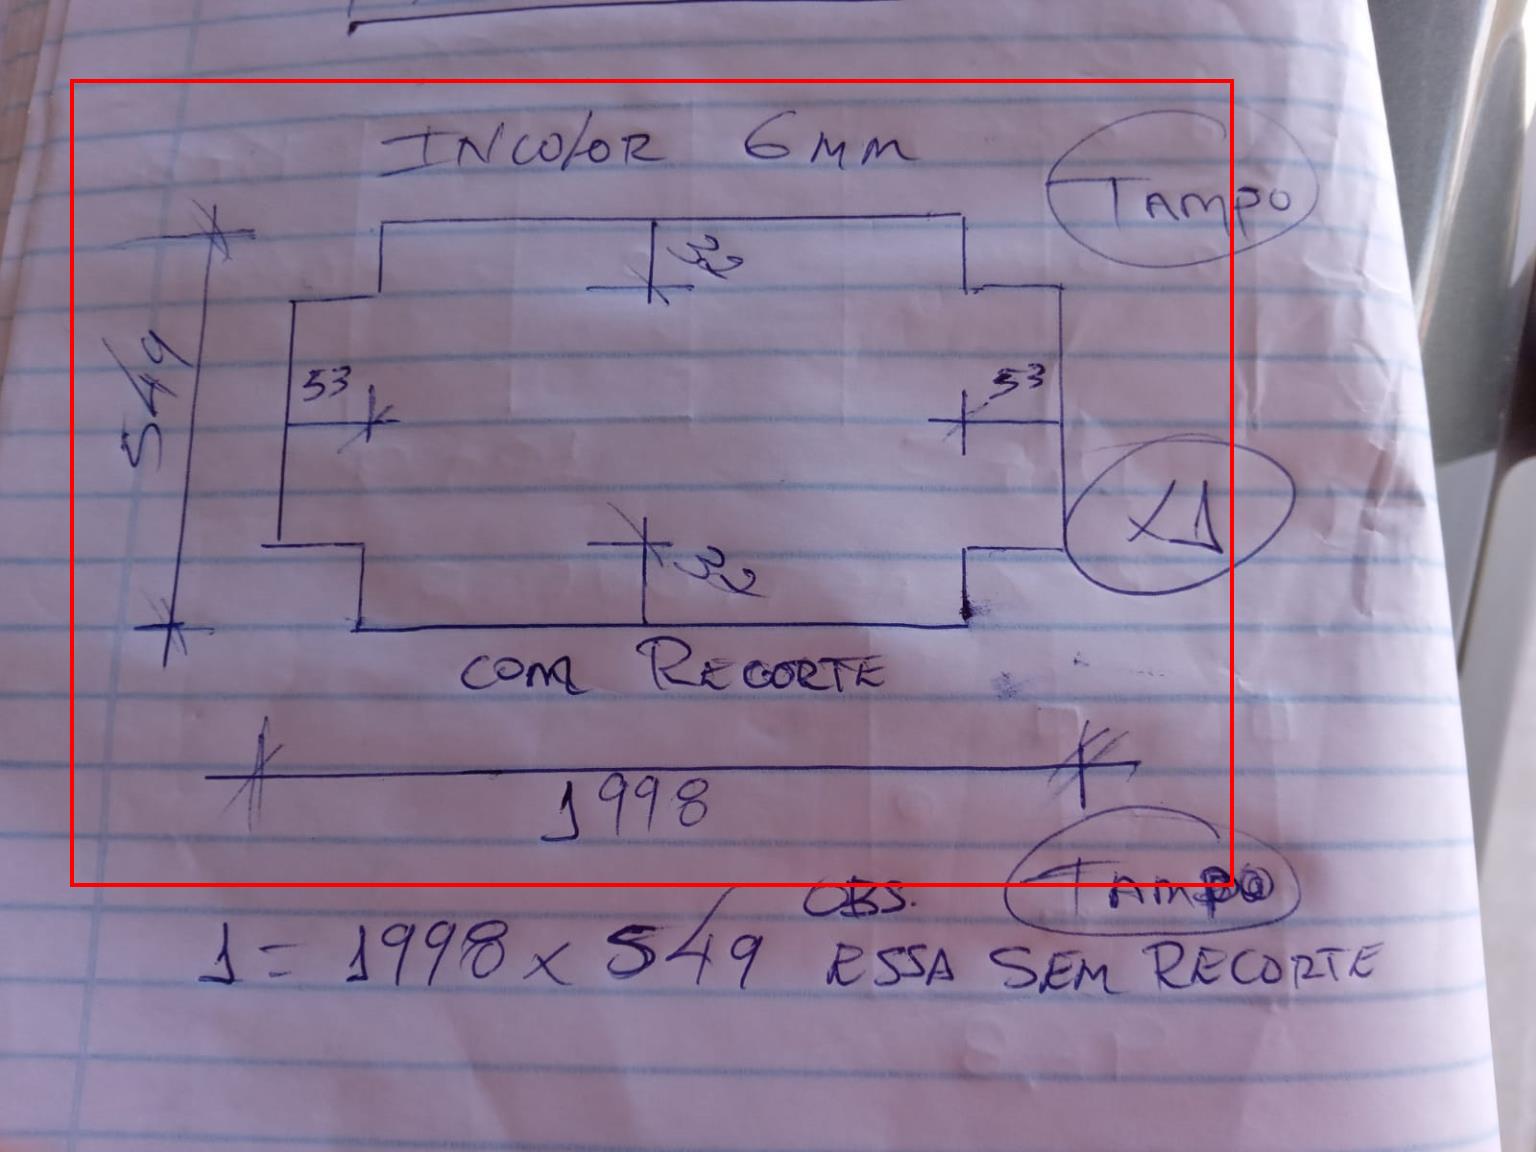 INCOLOR 6mm
TAMPO
32
549
53
53
X1
32
COM RECORTE
1998
OBS. TAMPO
1 = 1998 x 549 ESSA SEM RECORTE